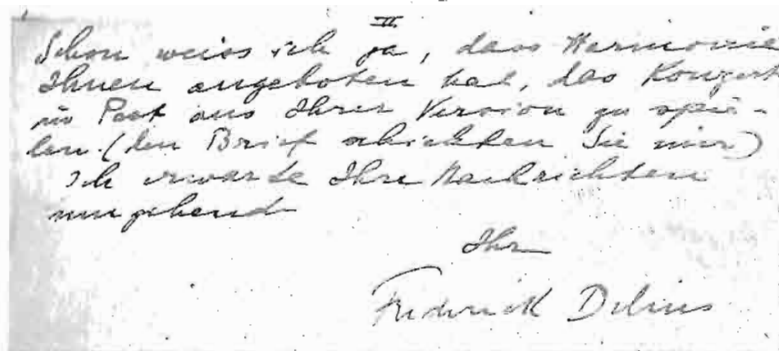 II
Schon weiss ich ja, dass Harmonie
Ihnen angeboten hat, das Konzert
in Pest aus Ihrer Version zu spie-
len. (den Brief schickten Sie mir)
Ich erwarte Ihre Nachrichten
umgehend
Ihr
Frederick Delius